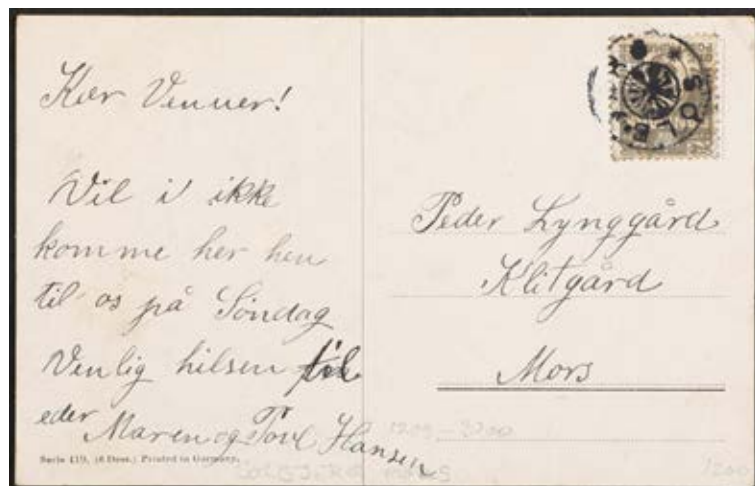 Kær Venner!
Vil i ikke
komme her hen
til os på Söndag
Venlig hilsen til
eder Maren og Povl Hansen
Serie 419. (6 Dess.) Printed in Germany.
Peder Lynggård
Klitgård
Mors
1200-3200
SOLBJERG MORS
1200